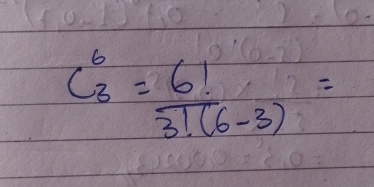 C₃⁶ = 6! / 3!(6-3) =